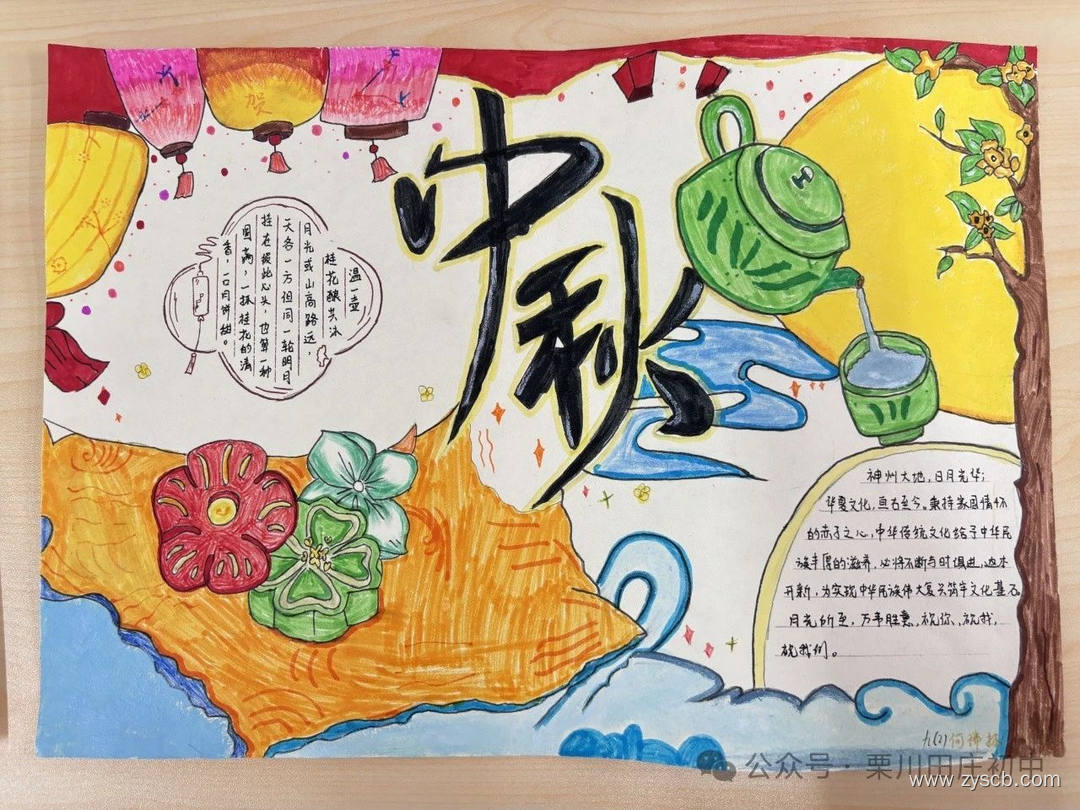 贺
中秋
温一壶
桂花酿共沐
月光或山高路远，
天各一方但同一轮明月
挂在彼此心头，也算一种
圆满，一抹桂花的清
香，一口月饼甜。
神州大地，日月光华；
华夏文化，亘古至今。秉持家国情怀
的赤子之心，中华传统文化给予中华民
族丰厚的滋养，必将不断与时俱进，返本
开新，为实现中华民族伟大复兴筑牢文化基石
月光所至，万事胜意，祝你，祝我，
祝我们。
九(2)
公众号·栗川田庄初中
www.zyscb.com